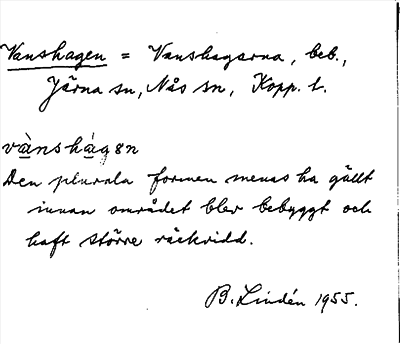 Vanshagen = Vanshagarna, beb.,
Järna sn, Nås sn, Kopp. l.
vànshàgən
Den plurala formen menas ha gällt
innan området blev bebyggt och
haft större räckvidd.
B. Lindén 1955.